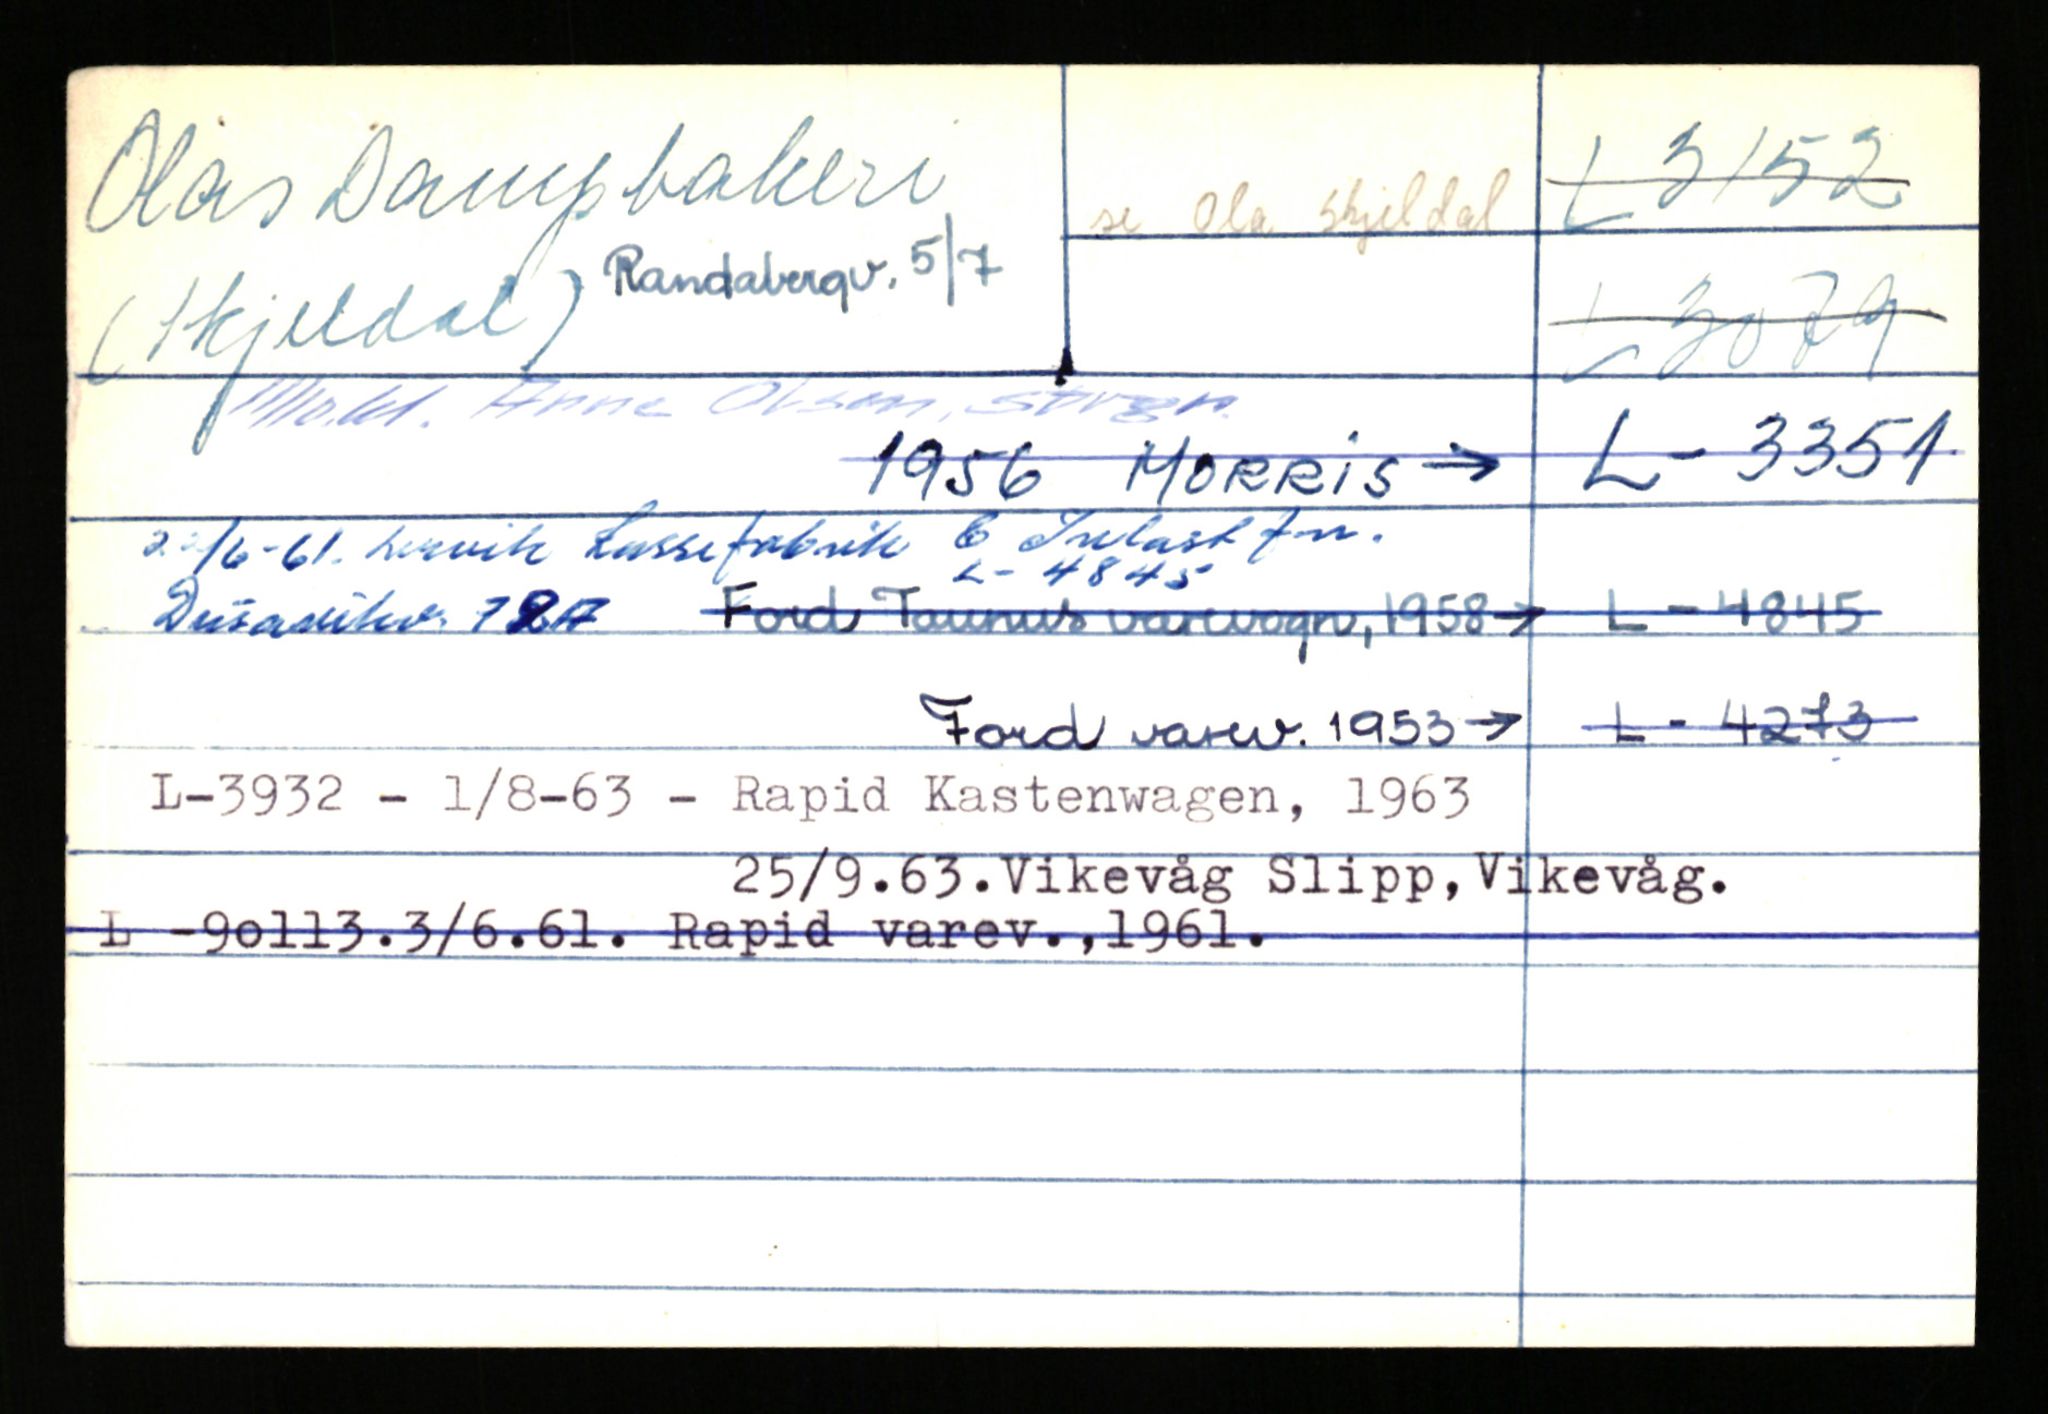 Olas Dampbakeri
se Ola Skjeldal
L 3152
(Skjeldal)
Randabergv. 5/7
L 3079
Anne Olsen,
1956 MORRIS → L - 3351
/6-61. Lervik Kassefabrik
L - 4845
Dusavikv. Ford Taunus varevogn, 1958 → L - 4845
Ford varev. 1953 → L - 4273
L-3932 - 1/8-63 - Rapid Kastenwagen, 1963
25/9.63.Vikevåg Slipp,Vikevåg.
L -90113.3/6.61. Rapid varev.,1961.